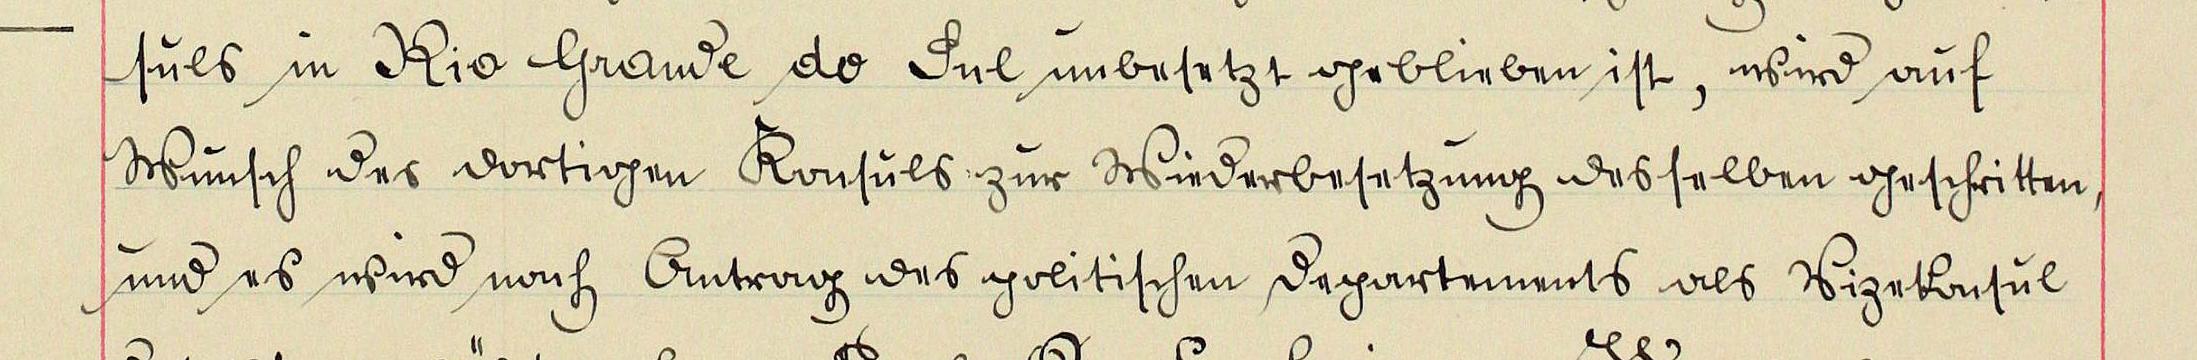 suls in Rio Grande do Sul unbesetzt geblieben ist, wird auf
Wunsch des dortigen Konsuls zur Wiederbesetzung desselben geschritten,
und es wird nach Antrag des politischen Departements als Vizekonsul